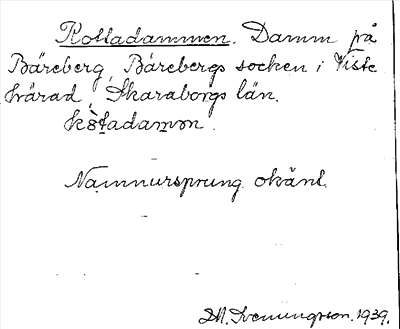 Kottadammen. Damm på
Bäreberg, Bärebergs socken i Viste
härad, Skaraborgs län.
kòtadamən.
Namnursprung okänt.
M. Svenungson. 1939.